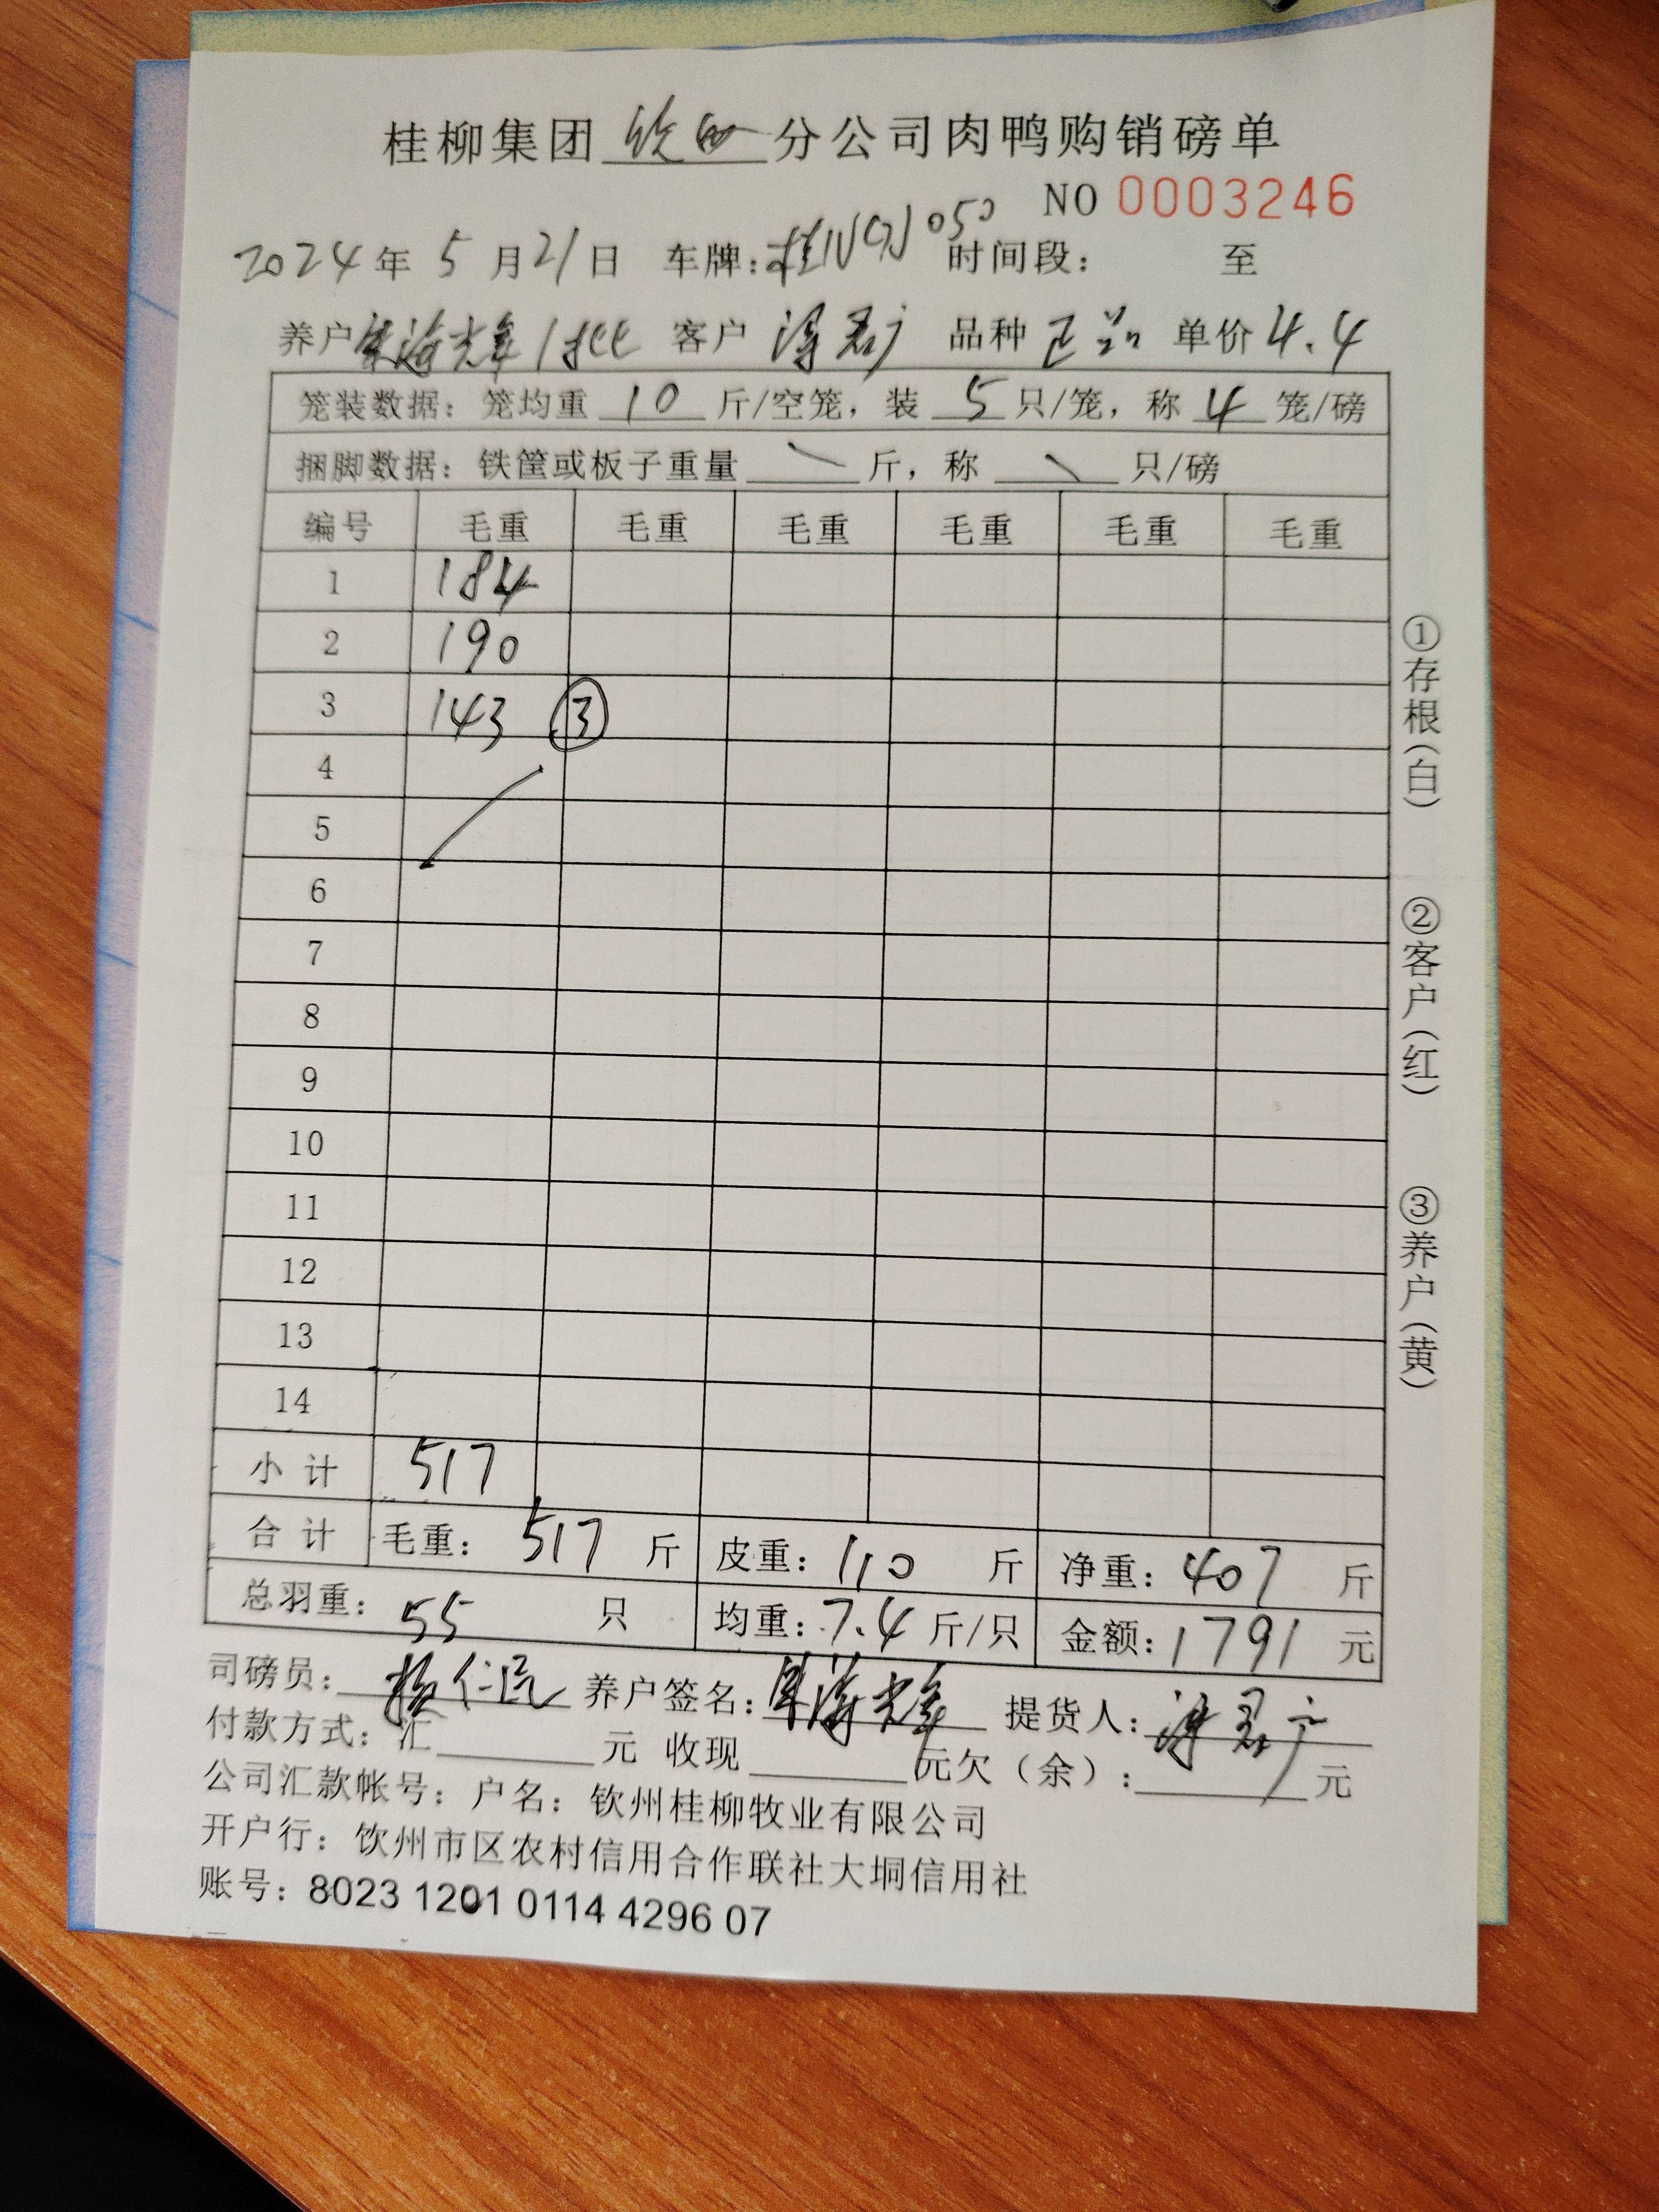 桂柳集团 钦州 分公司肉鸭购销磅单
NO 0003246
2024年 5月21日 车牌:桂N 050 时间段: 至
养户 客户 品种 正品 单价4.4
笼装数据:笼均重 10 斤/空笼,装 5 只/笼,称 4 笼/磅
捆脚数据:铁筐或板子重量 斤,称 只/磅
编号 毛重 毛重 毛重 毛重 毛重 毛重
1 184
2 190
3 143 ③
4
5
6
7
8
9
10
11
12
13
14
小计 517
合计 毛重: 517 斤 皮重: 110 斤 净重: 407 斤
总羽重: 55 只 均重: 7.4 斤/只 金额: 1791 元
司磅员: 仁 养户签名: 提货人:
付款方式:汇 元 收现 元欠(余): 元
公司汇款帐号:户名:钦州桂柳牧业有限公司
开户行:饮州市区农村信用合作联社大垌信用社
账号:8023 1201 0114 4296 07
①存根(白)
②客户(红)
③养户(黄)